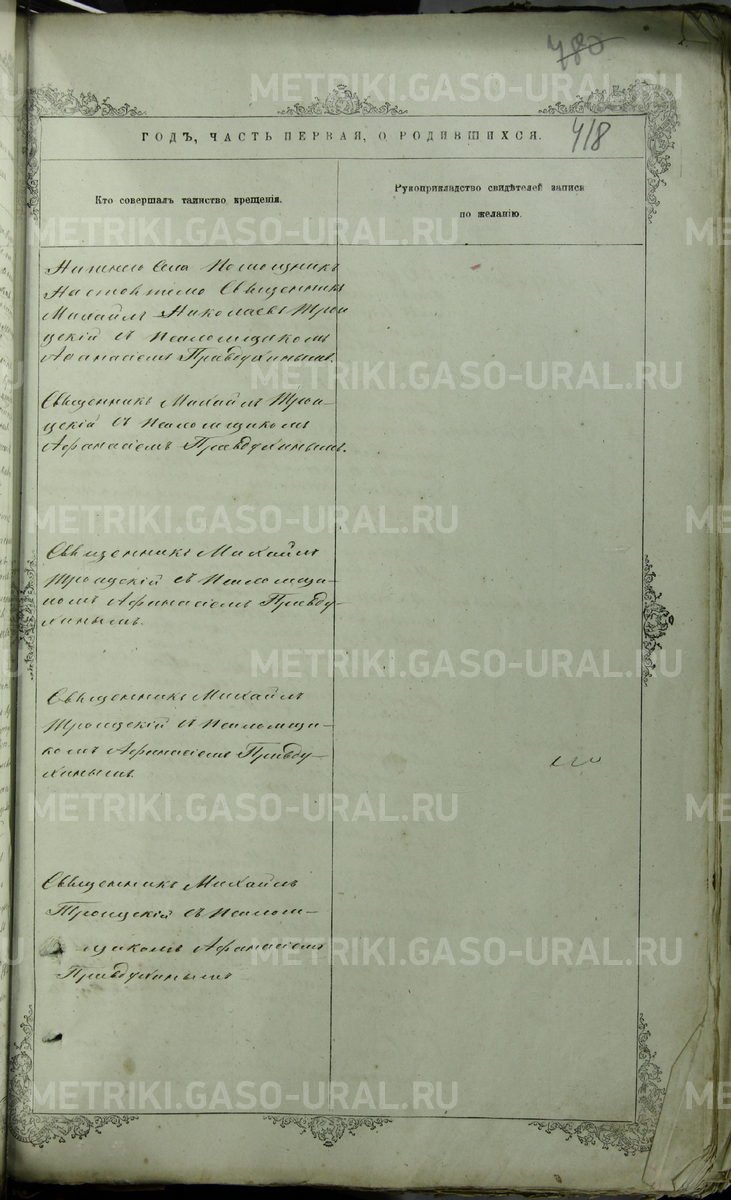 780
METRIKI.GASO-URAL.RU
ГОДЪ, ЧАСТЬ ПЕРВАЯ, О РОДИВШИХСЯ.
418
Кто совершалъ таинство крещенія.
Рукоприкладство свидѣтелей записи
по желанію.
Села Помощникъ
Настоятеля Священникъ
Михаилъ Николаевъ Трои
цкій съ Псаломщикомъ
Афанасіемъ Правдухинымъ.
Священникъ Михаилъ Трои-
цкій съ Псаломщикомъ
Афанасіемъ Правдухинымъ.
Священникъ Михаилъ
Троицкій съ Псаломщи-
комъ Афанасіемъ Правду-
хинымъ.
Священникъ Михаилъ
Троицкій съ Псаломщи-
комъ Афанасіемъ Правду-
хинымъ
Священникъ Михаилъ
Троицкій съ Псалом-
щикомъ Афанасіемъ
Правдухинымъ